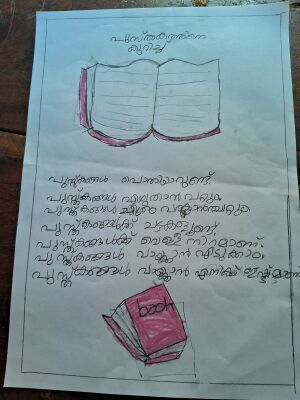 പുസ്തകത്തിനെ
കുറിച്ച്
പുസ്തകങ്ങൾ പൊതിയാറുണ്ട്.
പുസ്തകങ്ങൾ എഴുതാൻ പറ്റും
പുസ്തകങ്ങൾ
പുസ്തകങ്ങൾക്ക് ചട്ടകളുണ്ട്.
പുസ്തകങ്ങൾക്ക് വെള്ള നിറമാണ്.
പുസ്തകങ്ങൾ വായ്ക്കാൻ കിട്ടും.
പുസ്തകങ്ങൾ വായ്ക്കാൻ എനിക്ക് ഇഷ്ട്ടമാണ്
book